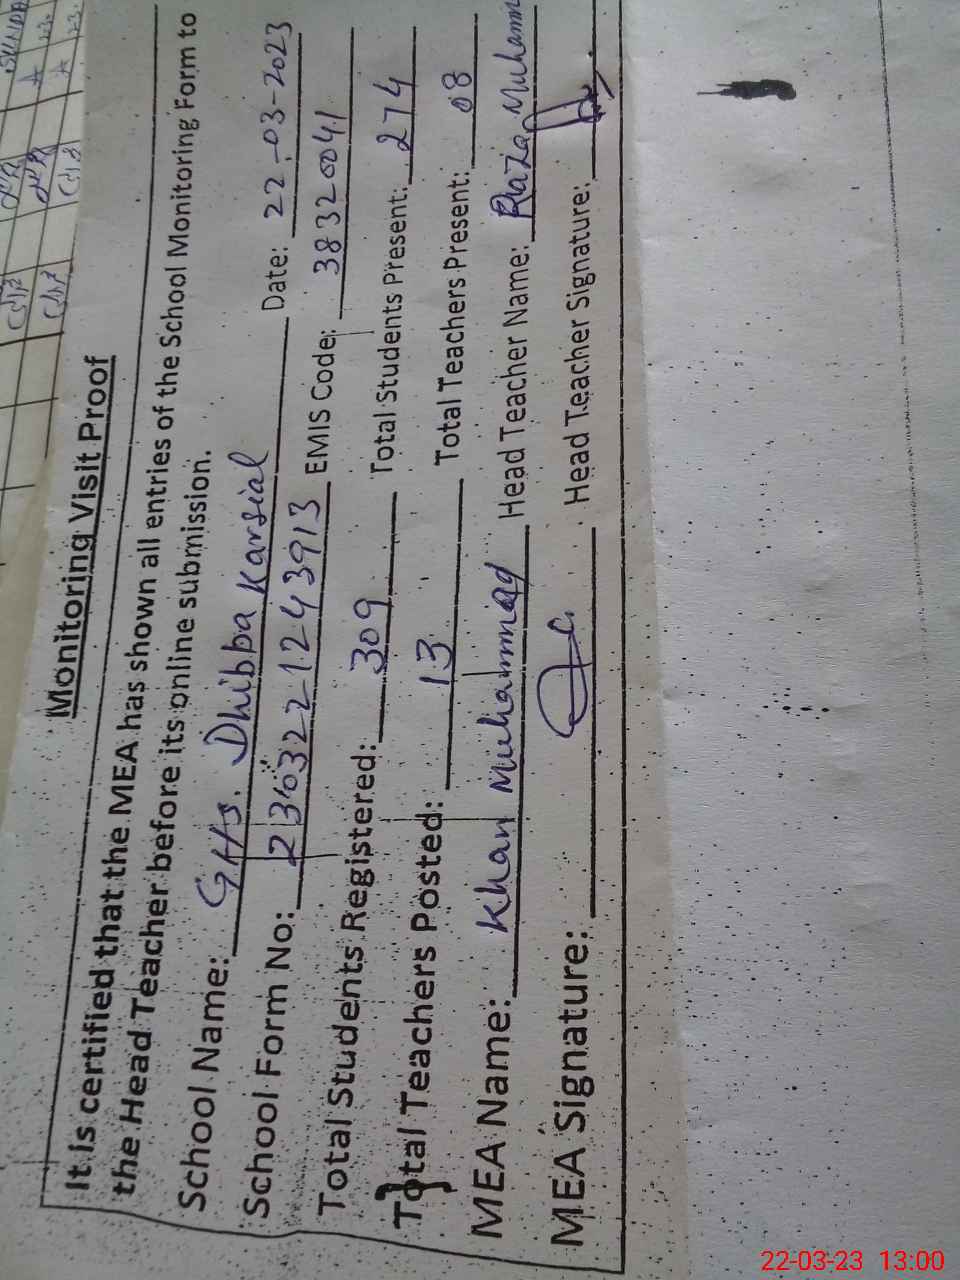 Monitoring Visit Proof
It is certified that the MEA has shown all entries of the School Monitoring Form to
the Head Teacher before its online submission.
School Name: GHS. Dhibba Karsial Date: 22-03-2023
School Form No: 2303221243913 EMIS Code: 38320041
Total Students Registered: 309 Total Students Present: 274
Total Teachers Posted: 13 Total Teachers Present: 08
MEA Name: Khan Muhammad Head Teacher Name: Raza Muhamm
MEA Signature: Head Teacher Signature:
22-03-23 13:00